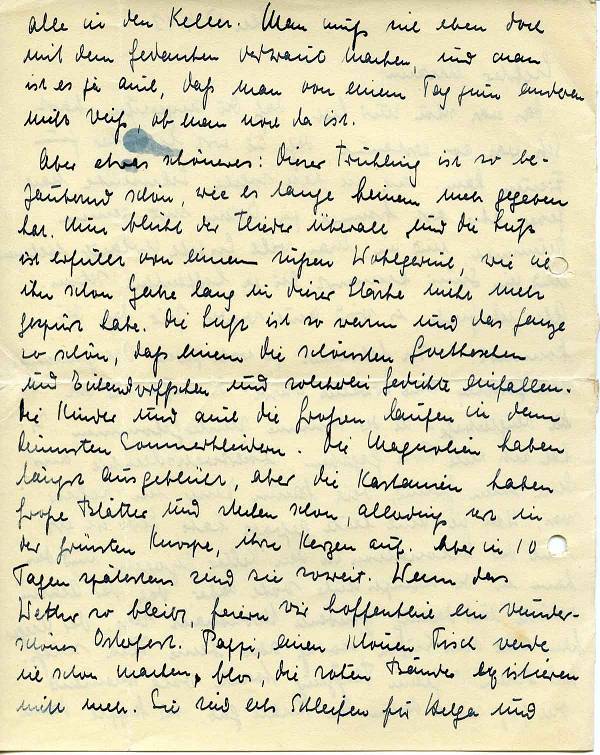 alle in den Keller. Man muß sich eben doch
mit dem Gedanken vertraut machen, und man
ist es ja auch, daß man von einem Tag zum anderen
nicht weiß, ob man noch da ist.
Aber etwas schöneres: Dieser Frühling ist so be-
zaubernd schön, wie es lange keinen mehr gegeben
hat. Nun blüht der Flieder überall und die Luft
ist erfüllt von einem süßen Wohlgeruch, wie ich
ihn schon Jahre lang in dieser Stärke nicht mehr
gespürt habe. Die Luft ist so warm und das Ganze
so schön, daß einem die schönsten Goetheschen
und Eichendorffschen und solcherlei Gedichte einfallen.
Die Kinder und auch die Großen laufen in den
dünnsten Sommerkleidern. Die Magnolien haben
längst ausgeblüht, aber die Kastanien haben
große Blätter und stecken schon, allerdings erst in
der grünsten Knospe, ihre Kerzen auf. Aber in 10
Tagen spätestens sind sie soweit. Wenn das
Wetter so bleibt, feiern wir hoffentlich ein wunder-
schönes Osterfest. Pappi, einen schönen Tisch werde
ich schon machen, blos, die roten Bänder existieren
nicht mehr. Sie sind als Schleifen für Helga und